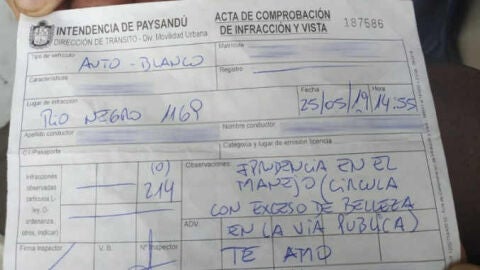 INTENDENCIA DE PAYSANDÚ
DIRECCIÓN DE TRÁNSITO - Div. Movilidad Urbana
ACTA DE COMPROBACIÓN
DE INFRACCIÓN Y VISTA
187586
Tipo de vehículo
AUTO - BLANCO
Matrícula
Características
Registro
Lugar de infracción
RIO NEGRO 1169
Fecha
25/05/19
Hora
14:55
Apellido conductor
Nombre conductor
C.I/Pasaporte
Categoría y lugar de emisión licencia
Infracciones
observadas
(artículos L-
ley, O-
ordenanza,
otros, indicar)
(0)
214
Observaciones:
EN EL
MANEJO (CIRCULA
CON EXCESO DE BELLEZA
EN LA VIA PUBLICA)
ADV.
TE AMO
Firma Inspector
V. B.
N° Inspector